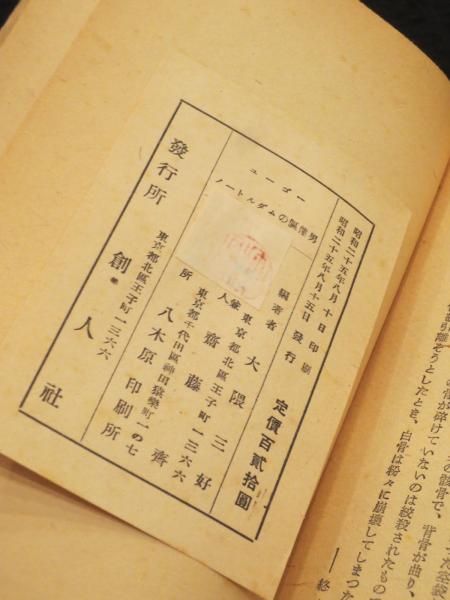 昭和二十五年八月十日印刷
昭和二十五年八月十五日發行
定價百貳拾圓
ユーゴー
ノートルダムの傴僂男
編著者 大隈三好
東京都北區王子町一三六六
人 齋藤 齊
東京都千代田區神田猿樂町一の七
所 八木原印刷所
東京都北區王子町一三六六
發行所 創人社
引離そうとしたとき、白骨は粉々に崩壊してしまつた
骨が碎けていないのは絞殺されたもの
骸骨で、背骨が曲り、
――終